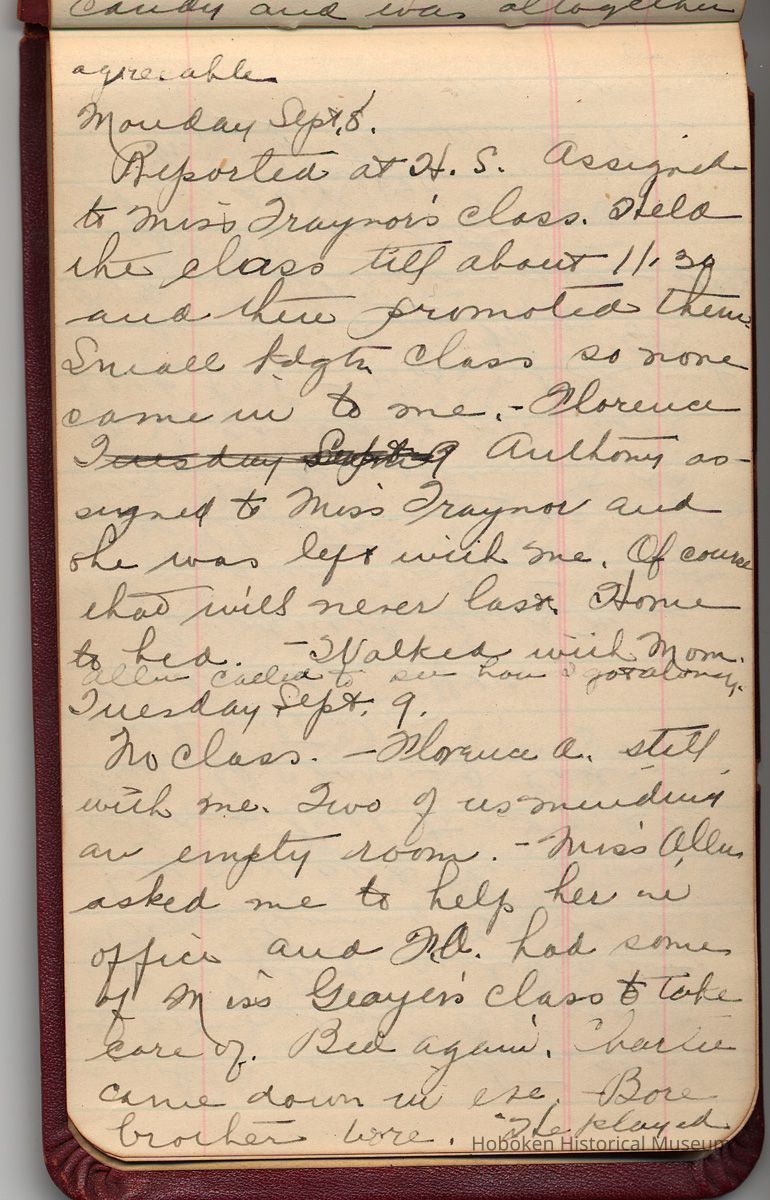 candy and was altogether
agreeable
Monday Sept. 8.
Reported at H. S. Assigned
to Miss Traynor's class. Held
the class till about 11.30
and then promoted them.
Small kdgtn class so none
came in to me. - Florence
Tuesday Sept 9 Anthony as-
signed to Miss Traynor and
she was left with me. Of course
that will never last. Home
to bed. - Walked with Mom.
Allen called to see how I got along.
Tuesday Sept. 9.
No class. - Florence A. still
with me. Two of us minding
an empty room. - Miss Allen
asked me to help her in
office and F.A. had some
of Miss Geayer's class to take
care of. Bed again. Charlie
came down in eve. - Bore
brother bore. We played
Hoboken Historical Museum